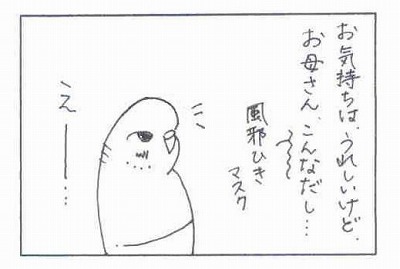 お気持ちは、うれしいけど、
お母さん、こんなだし…
風邪ひき
マスク
えー…